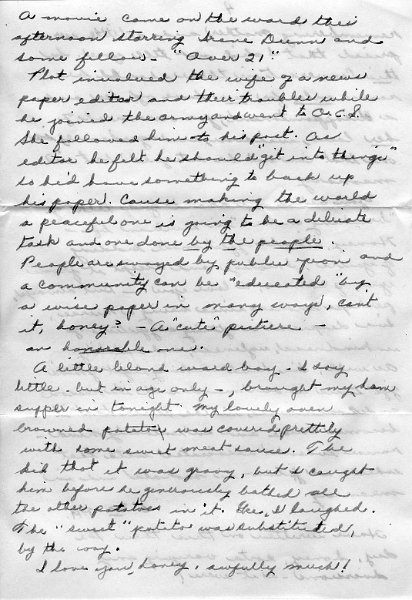 A movie came on the ward this
afternoon starring Irene Dunn and
some fellow - "Over 21."
Plot involved the wife of a news
paper editor and their troubles while
he joined the army and went to O.C.S.
She followed him to his post. As
editor he felt he should "get into things"
so he'd have something to back up
his paper. Cause making the world
a peaceful one is going to be a delicate
task and one done by the people.
People are swayed by public opion and
a community can be "educated" by
a wise paper in many ways, can't
it, honey? - A "cute" picture -
an honorable one.
A little blond ward boy - I say
little - but in age only -, brought my ham
supper in tonight. My lovely oven
browned potato was covered prettily
with some sweet meat sauce. The
did that it was gravy, but I caught
him before he generously bathed all
the other potatoes in it. Gee, I laughed.
The "sweet" potato was substituted,
by the way.
I love you, honey, awfully much!